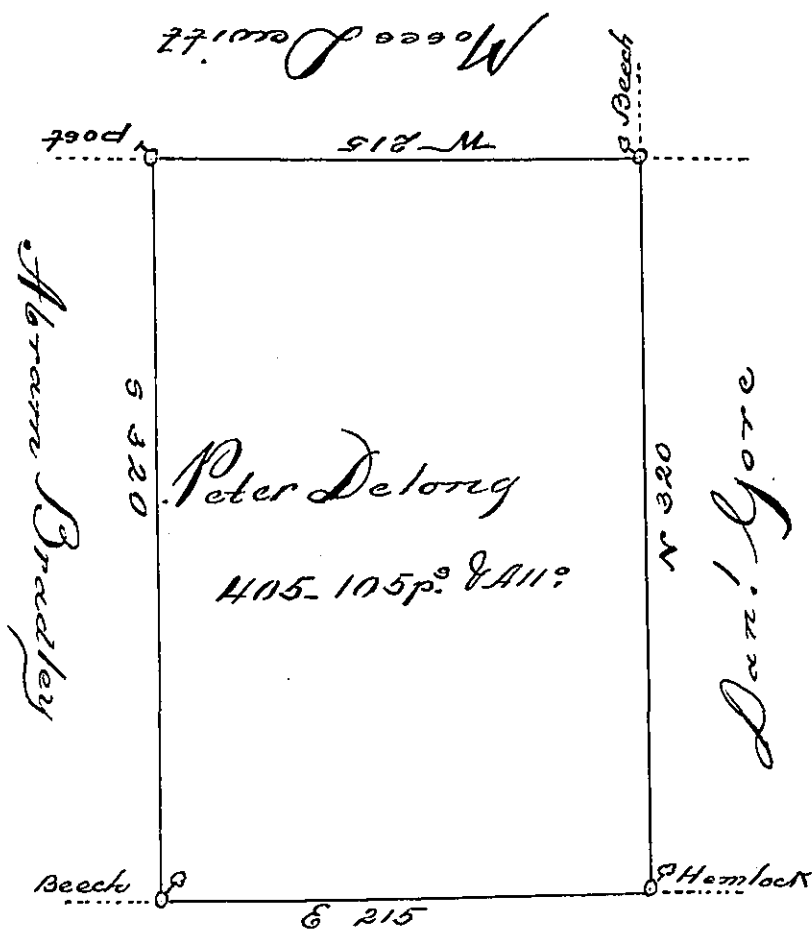 Moses Dewitt
Beech
post
W 215
Abram Bradley
S 320
Peter Delong
405-105ps. & All:
N 320
Danl. Gore
Beech
Hemlock
E 215